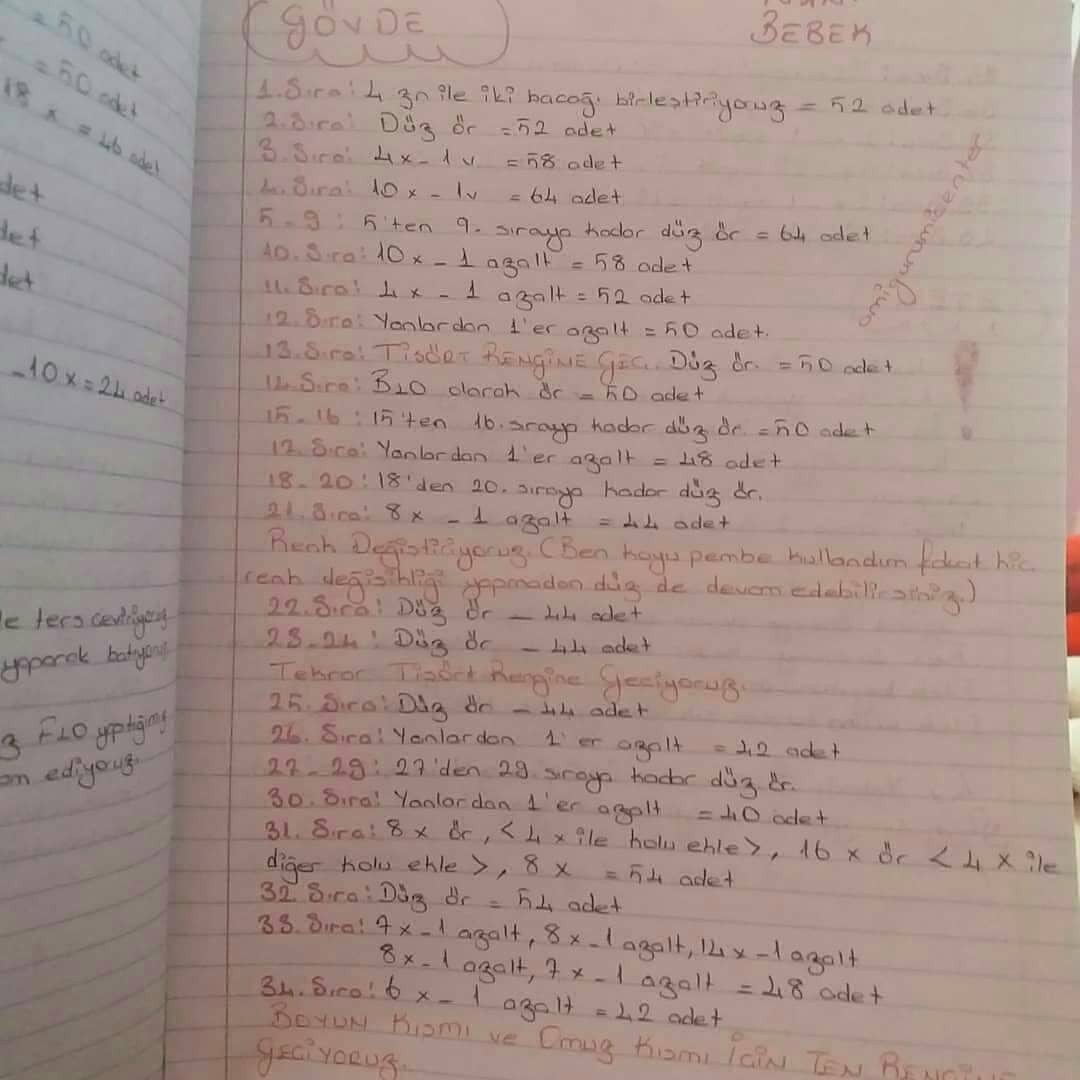 = 50 adet
= 50 adet
18 x = 46 adet
det
det
det
-10x = 24 adet
le ters çeviriyoruz
yaparak batıyoruz
FLO yaptığımız
am ediyoruz.
GÖVDE
BEBEK
1. Sıra: 4 zn ile iki bacağı birleştiriyoruz = 52 adet
2. Sıra: Düz ör = 52 adet
3. Sıra: 4x - 1v = 58 adet
4. Sıra: 10x - 1v = 64 adet
5 - 9 : 5'ten 9. sıraya kadar düz ör = 64 adet
10. Sıra: 10x - 1 azalt = 58 adet
11. Sıra: 4x - 1 azalt = 52 adet
12. Sıra: Yanlardan 1'er azalt = 50 adet.
13. Sıra: TİŞÖRT RENGİNE GEÇ. Düz ör. = 50 adet
14. Sıra: BLO olarak ör = 50 adet
15 - 16 : 15'ten 16. sıraya kadar düz ör. = 50 adet
17. Sıra: Yanlardan 1'er azalt = 48 adet
18 - 20 : 18'den 20. sıraya kadar düz ör.
21. Sıra: 8x - 1 azalt = 44 adet
Renk Değiştiriyoruz. (Ben koyu pembe kullandım fakat hiç
renk değişikliği yapmadan düz de devam edebilirsiniz.)
22. Sıra: Düz ör - 44 adet
23-24 : Düz ör - 44 adet
Tekrar Tişört Rengine Geçiyoruz.
25. Sıra: Düz ör - 44 adet
26. Sıra: Yanlardan 1'er azalt = 42 adet
27 - 29 : 27'den 29. sıraya kadar düz ör.
30. Sıra: Yanlardan 1'er azalt = 40 adet
31. Sıra: 8x ör, < 4x ile kolu ekle >, 16x ör < 4x ile
diğer kolu ekle >, 8x = 54 adet
32. Sıra: Düz ör = 54 adet
33. Sıra: 7x - 1 azalt, 8x - 1 azalt, 14x - 1 azalt
8x - 1 azalt, 7x - 1 azalt = 48 adet
34. Sıra: 6x - 1 azalt = 42 adet
BOYUN KISMI ve OMUZ KISMI İÇİN TEN RENGİNE
GEÇİYORUZ.
!